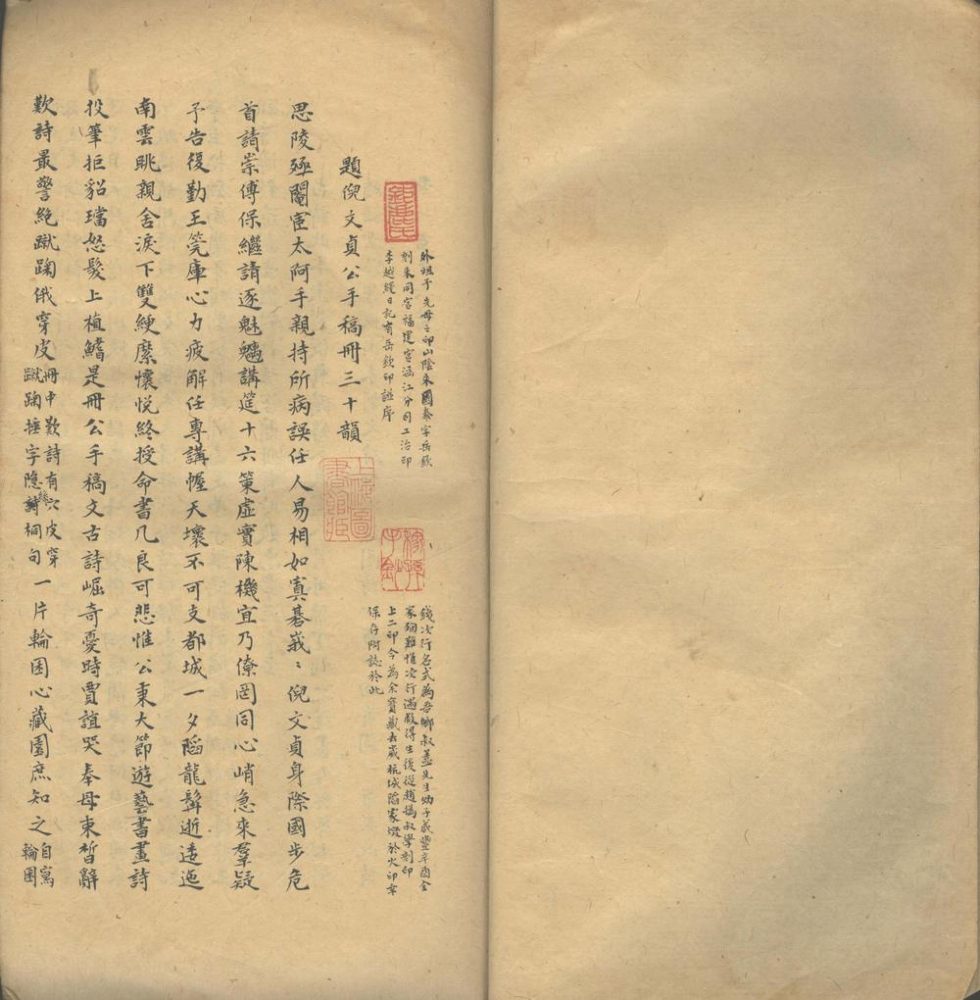 外坦予先母之印山陰朱國泰字岳欽
刻朱同官福建官涵江分司工治印
李越縵日記有岳欽印譜序
錢次行名式為吾鄉叔蓋先生幼子咸豐辛酉全
家殉難惟次行遇救得生後從趙撝叔學刻印
上二印今為余寶藏去歲杭城陷家燬於火印幸
保存附誌於此
題倪文貞公手稿冊三十韻
思陵殛閹宦太阿手親持所病誤任人易相如寘碁峩峩倪文貞身際國步危
首請崇傅保繼請逐魅魑講筵十六策虛實陳機宜乃僚罔同心峭急來羣疑
予告復勤王筦庫心力疲解任專講幄天壤不可支都城一夕陷龍髯逝逶迤
南雲眺親舍淚下雙綆縻懷悅終授命書几良可悲惟公秉大節遊藝書畫詩
投筆拒貂璫怒髮上植鰭是冊公手稿文古詩崛奇憂時賈誼哭奉母束皙辭
歎詩最警絶蹴踘俄穿皮冊中歎詩有穴皮穿
蹴踘捶字隱絲桐句一片輪囷心藏園庶知之自寫
輪囷